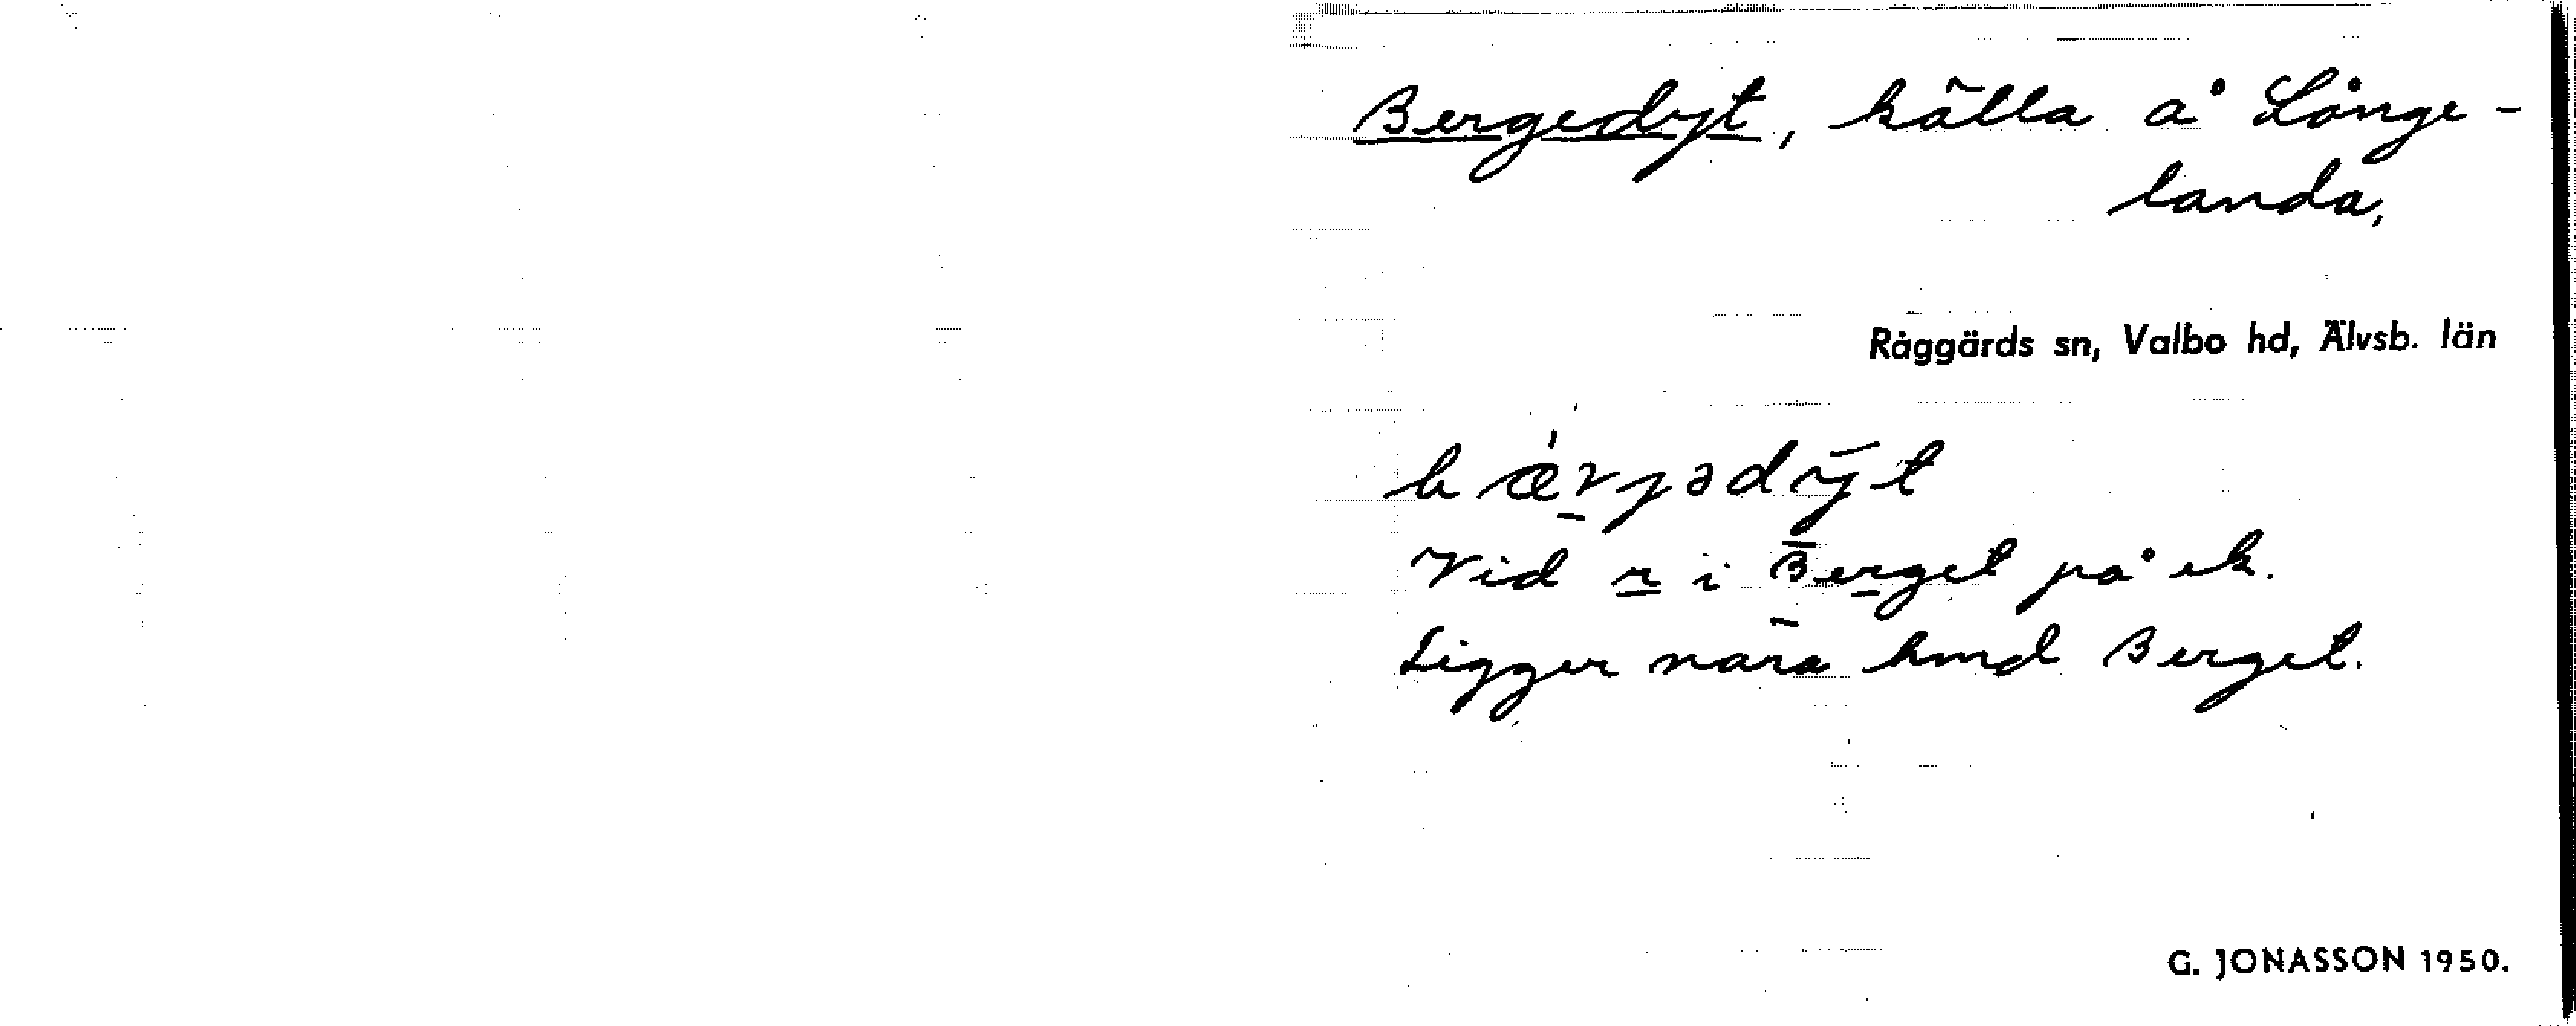 Bergedyt, källa å Långe-
landa,
Råggärds sn, Valbo hd, Älvsb. län
bæ̀rjədy̅t
Vid r i Berget på ek.
Ligger nära hmd Berget.
G. JONASSON 1950.